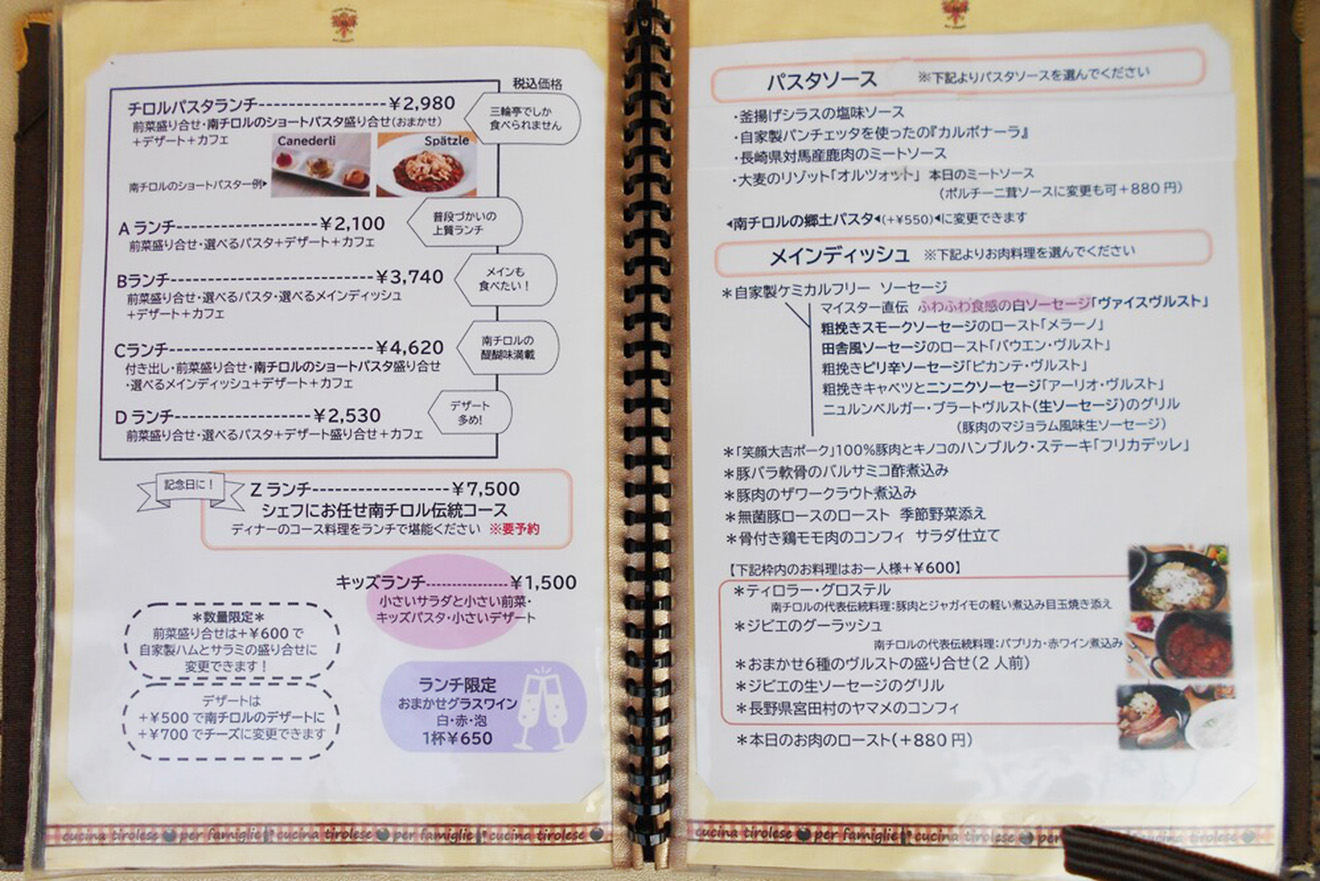 税込価格
チロルパスタランチ-----------------¥2,980
前菜盛り合せ・南チロルのショートパスタ盛り合せ(おまかせ)
+デザート+カフェ
三輪亭でしか
食べられません
Canederli
Spätzle
南チロルのショートパスタ一例▶
A ランチ-------------------¥2,100
前菜盛り合せ・選べるパスタ+デザート+カフェ
普段づかいの
上質ランチ
Bランチ---------------------------¥3,740
前菜盛り合せ・選べるパスタ・選べるメインディッシュ
+デザート+カフェ
メインも
食べたい!
Cランチ---------------------------¥4,620
付き出し・前菜盛り合せ・南チロルのショートパスタ盛り合せ
・選べるメインディッシュ+デザート+カフェ
南チロルの
醍醐味満載
D ランチ------------------¥2,530
前菜盛り合せ・選べるパスタ+デザート盛り合せ+カフェ
デザート
多め!
記念日に!
Z ランチ------------------¥7,500
シェフにお任せ南チロル伝統コース
ディナーのコース料理をランチで堪能ください ※要予約
キッズランチ----------------¥1,500
小さいサラダと小さい前菜・
キッズパスタ・小さいデザート
*数量限定*
前菜盛り合せは+¥600で
自家製ハムとサラミの盛り合せに
変更できます!
デザートは
+¥500で南チロルのデザートに
+¥700でチーズに変更できます
ランチ限定
おまかせグラスワイン
白・赤・泡
1杯¥650
cucina tirolese per famiglie cucina tirolese per famiglie cucina tirolese
パスタソース ※下記よりパスタソースを選んでください
・釜揚げシラスの塩味ソース
・自家製パンチェッタを使ったの『カルボナーラ』
・長崎県対馬産鹿肉のミートソース
・大麦のリゾット「オルツォット」 本日のミートソース
(ポルチーニ茸ソースに変更も可+880円)
◀南チロルの郷土パスタ◀(+¥550)◀に変更できます
メインディッシュ ※下記よりお肉料理を選んでください
*自家製ケミカルフリー ソーセージ
マイスター直伝 ふわふわ食感の白ソーセージ「ヴァイスヴルスト」
粗挽きスモークソーセージのロースト「メラーノ」
田舎風ソーセージのロースト「バウエン・ヴルスト」
粗挽きピリ辛ソーセージ「ピカンテ・ヴルスト」
粗挽きキャベツとニンニクソーセージ「アーリオ・ヴルスト」
ニュルンベルガー・ブラートヴルスト(生ソーセージ)のグリル
(豚肉のマジョラム風味生ソーセージ)
*「笑顔大吉ポーク」100%豚肉とキノコのハンブルク・ステーキ「フリカデッレ」
*豚バラ軟骨のバルサミコ酢煮込み
*豚肉のザワークラウト煮込み
*無菌豚ロースのロースト 季節野菜添え
*骨付き鶏モモ肉のコンフィ サラダ仕立て
【下記枠内のお料理はお一人様+¥600】
*ティロラー・グロステル
南チロルの代表伝統料理:豚肉とジャガイモの軽い煮込み目玉焼き添え
*ジビエのグーラッシュ
南チロルの代表伝統料理:パプリカ・赤ワイン煮込み
*おまかせ6種のヴルストの盛り合せ(2人前)
*ジビエの生ソーセージのグリル
*長野県宮田村のヤマメのコンフィ
*本日のお肉のロースト(+880円)
cucina tirolese per famiglie cucina tirolese per